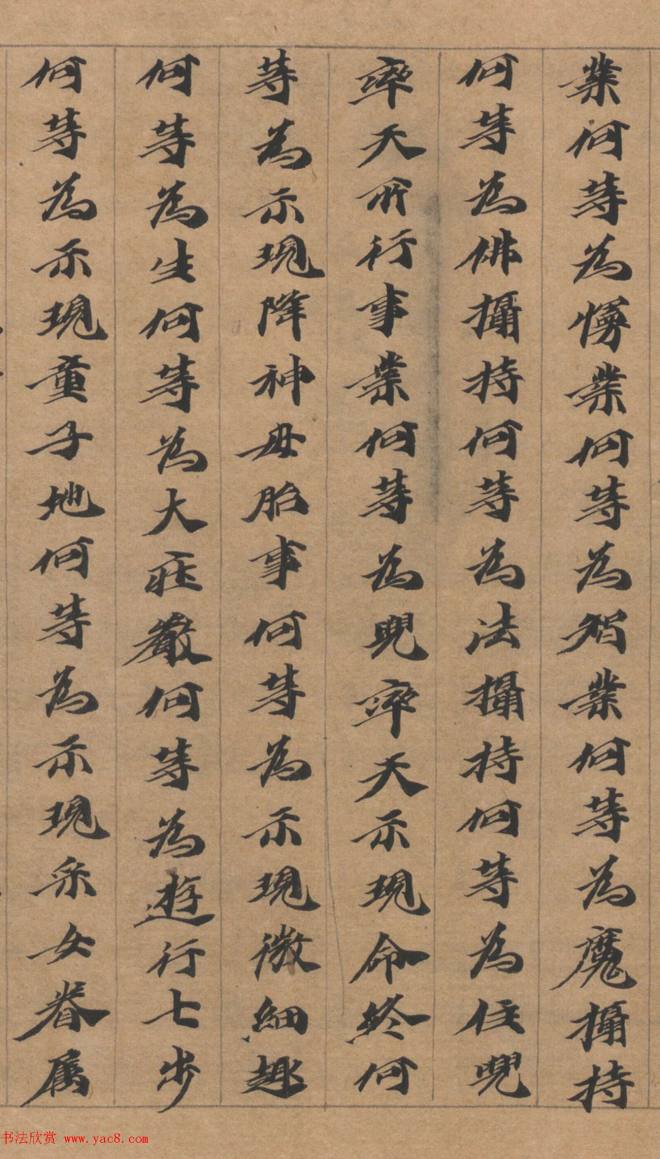 業何等為慢業何等為智業何等為魔攝持
何等為佛攝持何等為法攝持何等為住兜
率天所行事業何等為兜率天示現命終何
等為示現降神母胎事何等為示現微細趣
何等為生何等為大莊嚴何等為遊行七步
何等為示現童子地何等為示現采女眷属
书法欣赏 www.yac8.com